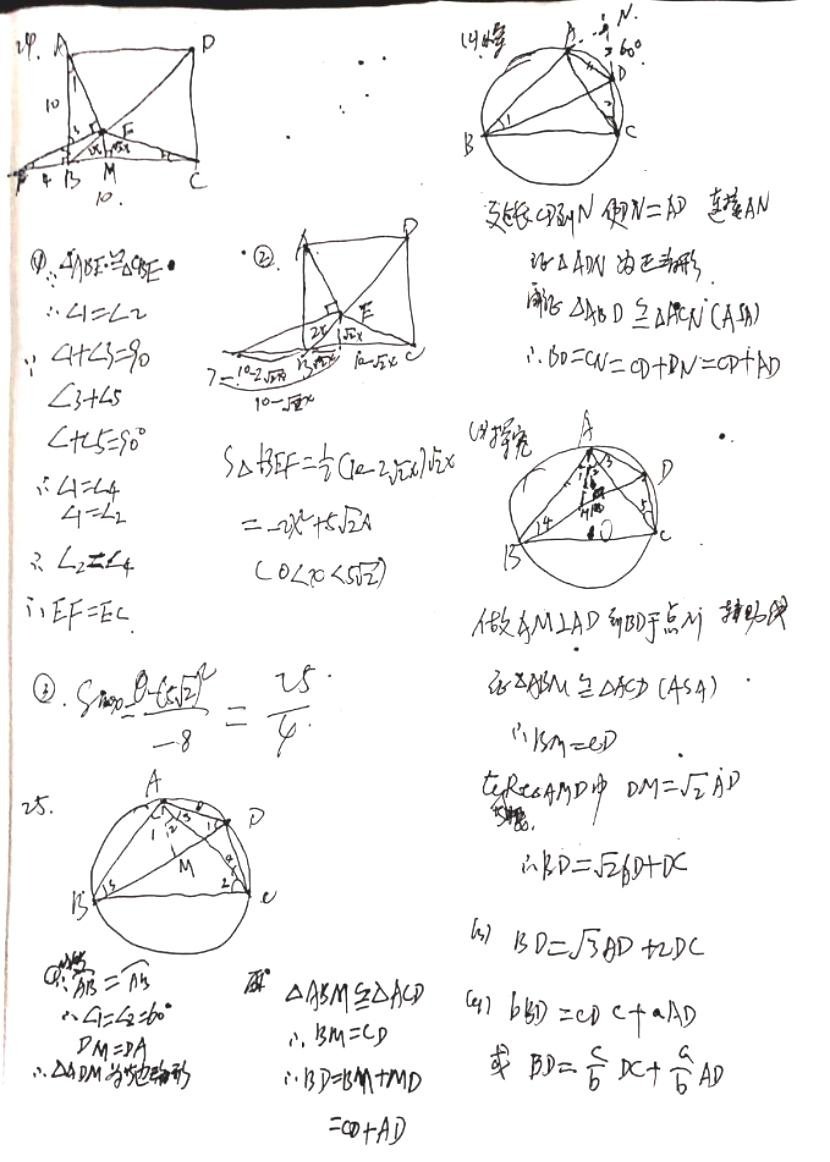 24.
A
D
1
10
3
E
2x
√2x
4
B
M
C
10.
① ∵△ABE≌△CBE
∴∠1=∠2
∵ ∠1+∠3=90
∠3+∠5
∠4+∠5=90°
∴∠1=∠4
∠1=∠2
∴ ∠2=∠4
∴EF=EC
②
A
D
E
2x
√2x
10-2√2x
B
√2x
10-√2x
C
10-√2x
S△BEF=1/2(10-2√2x)√2x
=-2x²+5√2x
(0<x<5√2)
③. Smax=0-(5√2)²/-8=25/4
25.
A
D
1
2
3
M
B
3
2
C
∵AB=AB
∴∠1=∠2=60°
DM=DA
∴△ADM为等边三角形
△ABM≌△ACD
∴BM=CD
∴BD=BM+MD
=CD+AD
N.
A
60°
D
B
1
2
C
延长CD到N 使DN=AD 连接AN
证△ADN为正三角形
再证△ABD≌△ACN(ASA)
∴BD=CN=CD+DN=CD+AD
(2)探究
A
3
D
M
B
4
5
O
C
做AM⊥AD 交BD于点M 辅助线
证△ABM≌△ACD(ASA)
∴BM=CD
在Rt△AMD中 DM=√2AD
∴BD=√2AD+DC
(3) BD=√3AD+2DC
(4) bBD=cDC+aAD
或 BD=c/b DC+a/b AD